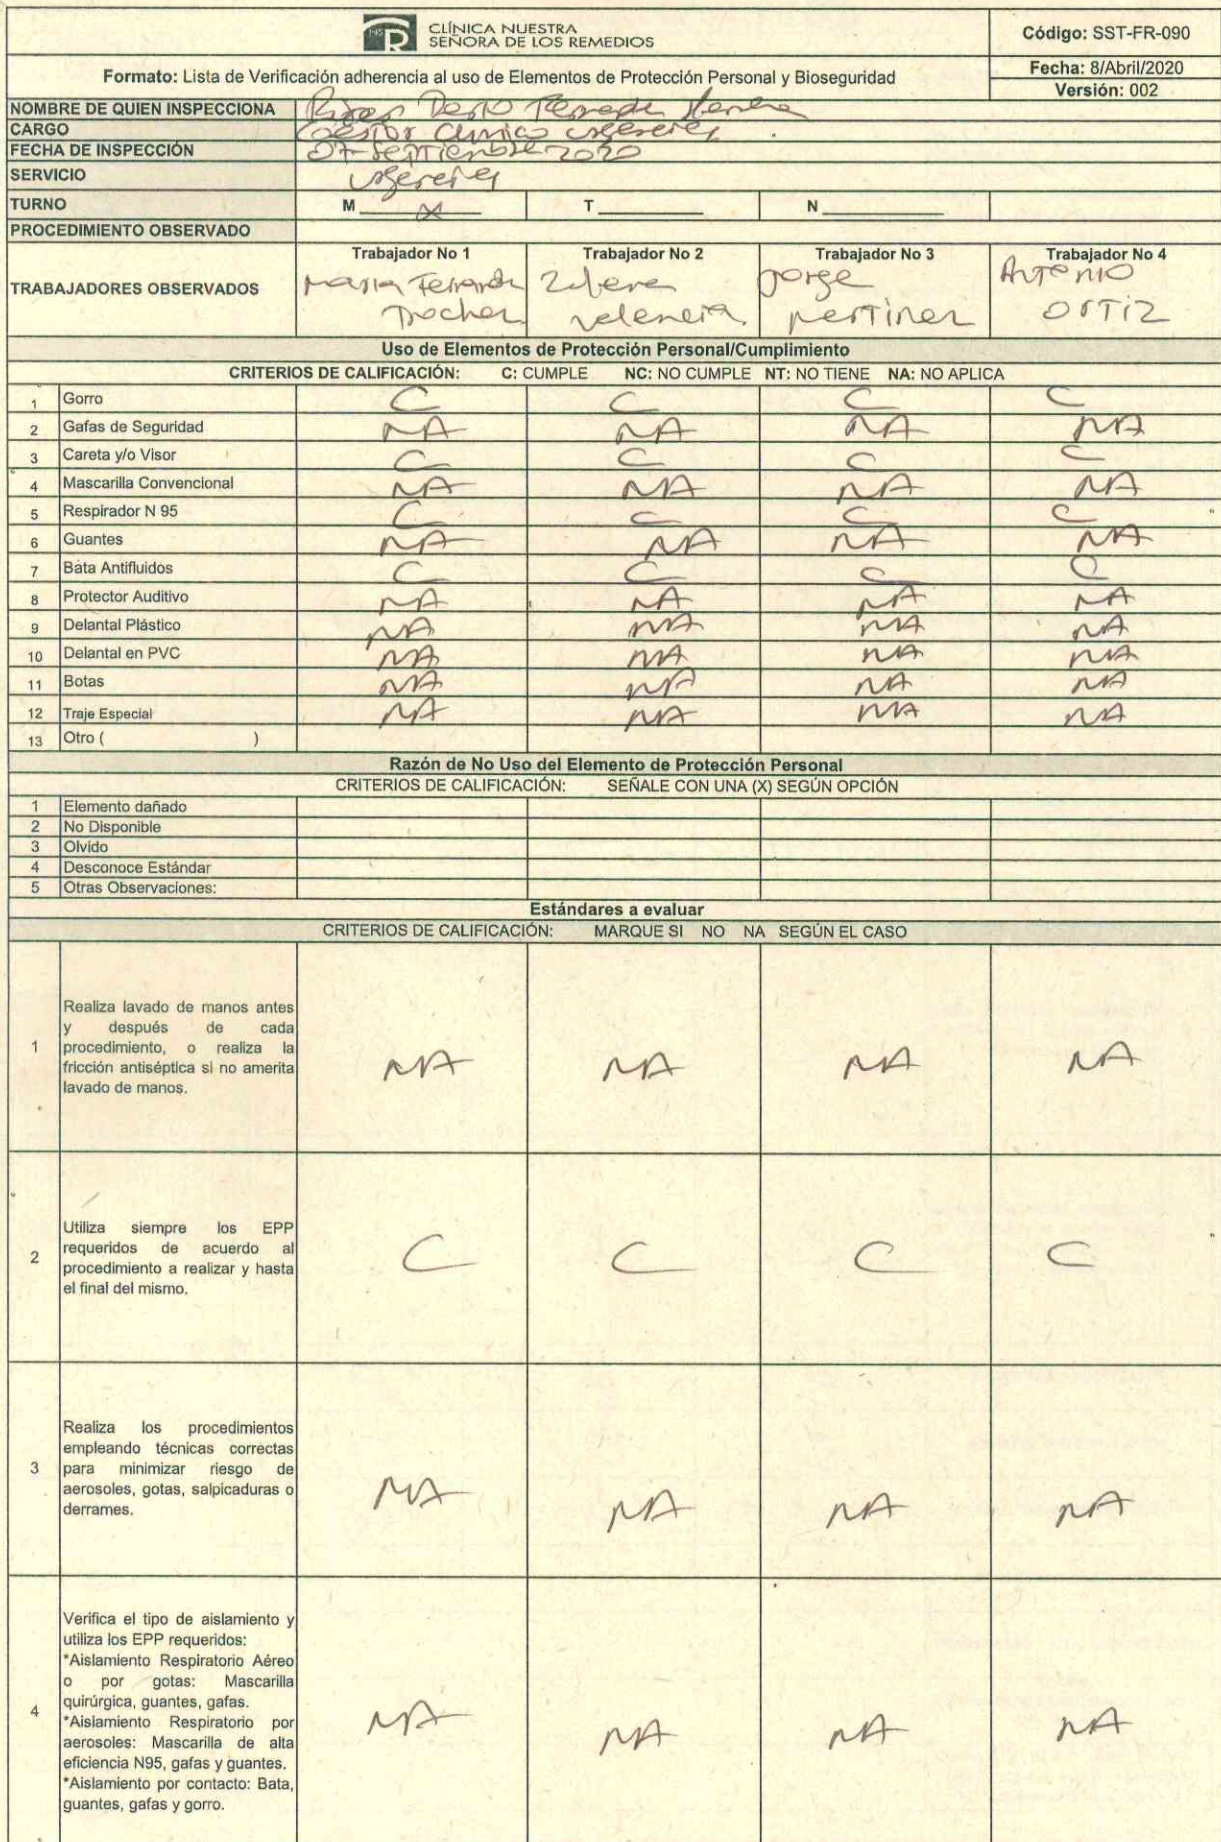 CLÍNICA NUESTRA
SEÑORA DE LOS REMEDIOS
Código: SST-FR-090
Formato: Lista de Verificación adherencia al uso de Elementos de Protección Personal y Bioseguridad
Fecha: 8/Abril/2020
Versión: 002
NOMBRE DE QUIEN INSPECCIONA
CARGO Gestor Clinico
FECHA DE INSPECCIÓN 07-Septiembre 2020
SERVICIO
TURNO M x T N
PROCEDIMIENTO OBSERVADO
Trabajador No 1 Trabajador No 2 Trabajador No 3 Trabajador No 4
TRABAJADORES OBSERVADOS
Maria Fernanda Jorge Antonio
ORTIZ
Uso de Elementos de Protección Personal/Cumplimiento
CRITERIOS DE CALIFICACIÓN: C: CUMPLE NC: NO CUMPLE NT: NO TIENE NA: NO APLICA
1 Gorro C C C C
2 Gafas de Seguridad NA NA NA NA
3 Careta y/o Visor C C C C
4 Mascarilla Convencional NA NA NA NA
5 Respirador N 95 C C C C
6 Guantes NA NA NA NA
7 Bata Antifluidos C C C C
8 Protector Auditivo NA NA NA NA
9 Delantal Plástico NA NA NA NA
10 Delantal en PVC NA NA NA NA
11 Botas NA NA NA NA
12 Traje Especial NA NA NA NA
13 Otro ( )
Razón de No Uso del Elemento de Protección Personal
CRITERIOS DE CALIFICACIÓN: SEÑALE CON UNA (X) SEGÚN OPCIÓN
1 Elemento dañado
2 No Disponible
3 Olvido
4 Desconoce Estándar
5 Otras Observaciones:
Estándares a evaluar
CRITERIOS DE CALIFICACIÓN: MARQUE SI NO NA SEGÚN EL CASO
Realiza lavado de manos antes
y después de cada
1 procedimiento, o realiza la
fricción antiséptica si no amerita
lavado de manos.
NA NA NA NA
Utiliza siempre los EPP
requeridos de acuerdo al
2 procedimiento a realizar y hasta
el final del mismo.
C C C C
Realiza los procedimientos
empleando técnicas correctas
3 para minimizar riesgo de
aerosoles, gotas, salpicaduras o
derrames.
NA NA NA NA
Verifica el tipo de aislamiento y
utiliza los EPP requeridos:
*Aislamiento Respiratorio Aéreo
o por gotas: Mascarilla
quirúrgica, guantes, gafas.
4 *Aislamiento Respiratorio por
aerosoles: Mascarilla de alta
eficiencia N95, gafas y guantes.
*Aislamiento por contacto: Bata,
guantes, gafas y gorro.
NA NA NA NA